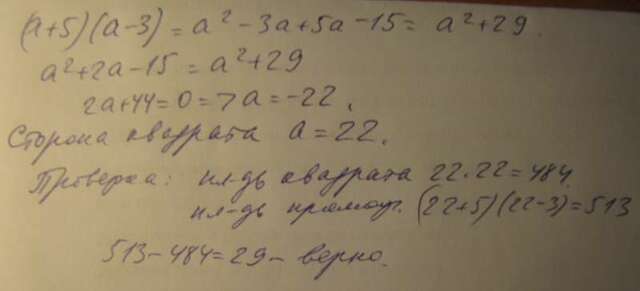 (a+5)(a-3) = a² - 3a + 5a - 15 = a² + 29.
a² + 2a - 15 = a² + 29
2a + 44 = 0 => a = -22.
Сторона квадрата a = 22.
Проверка: пл-дь квадрата 22.22 = 484.
пл-дь прямоуг. (22+5)(22-3) = 513
513 - 484 = 29 - верно.